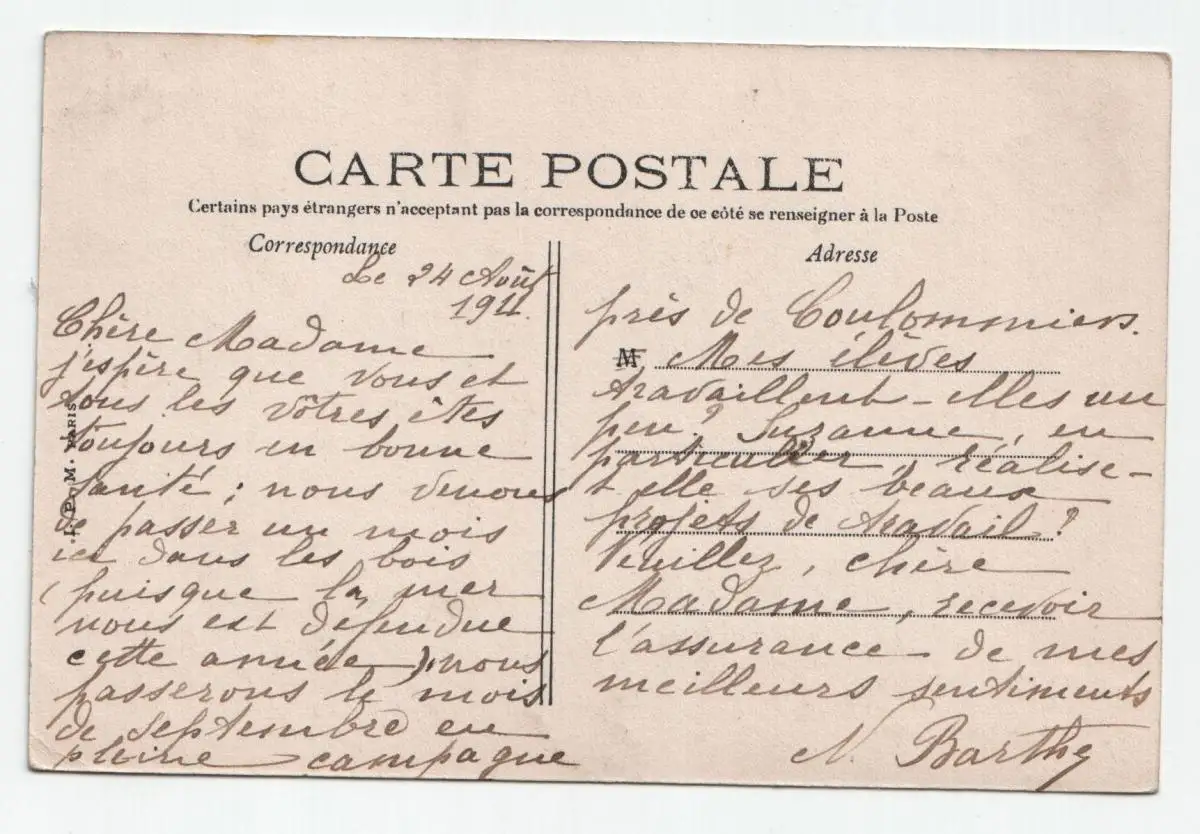 CARTE POSTALE
Certains pays étrangers n'acceptent pas la correspondance de ce côté se renseigner à la Poste
Correspondance
Le 24 Août
1911.
Chère Madame
j'espère que vous et
tous les vôtres êtes
toujours en bonne
santé ; nous venons
de passer un mois
ici dans les bois
(puisque la mer
nous est défendue
cette année), nous
passerons le mois
de septembre en
pleine campagne
I. P. M. PARIS
Adresse
près de Coulommiers.
M
Mes élèves
travaillent-elles un
peu ? Suzanne, en
particulier, réalise-
t-elle ses beaux
projets de travail ?
Veuillez, chère
Madame, recevoir
l'assurance de mes
meilleurs sentiments
N. Barthy